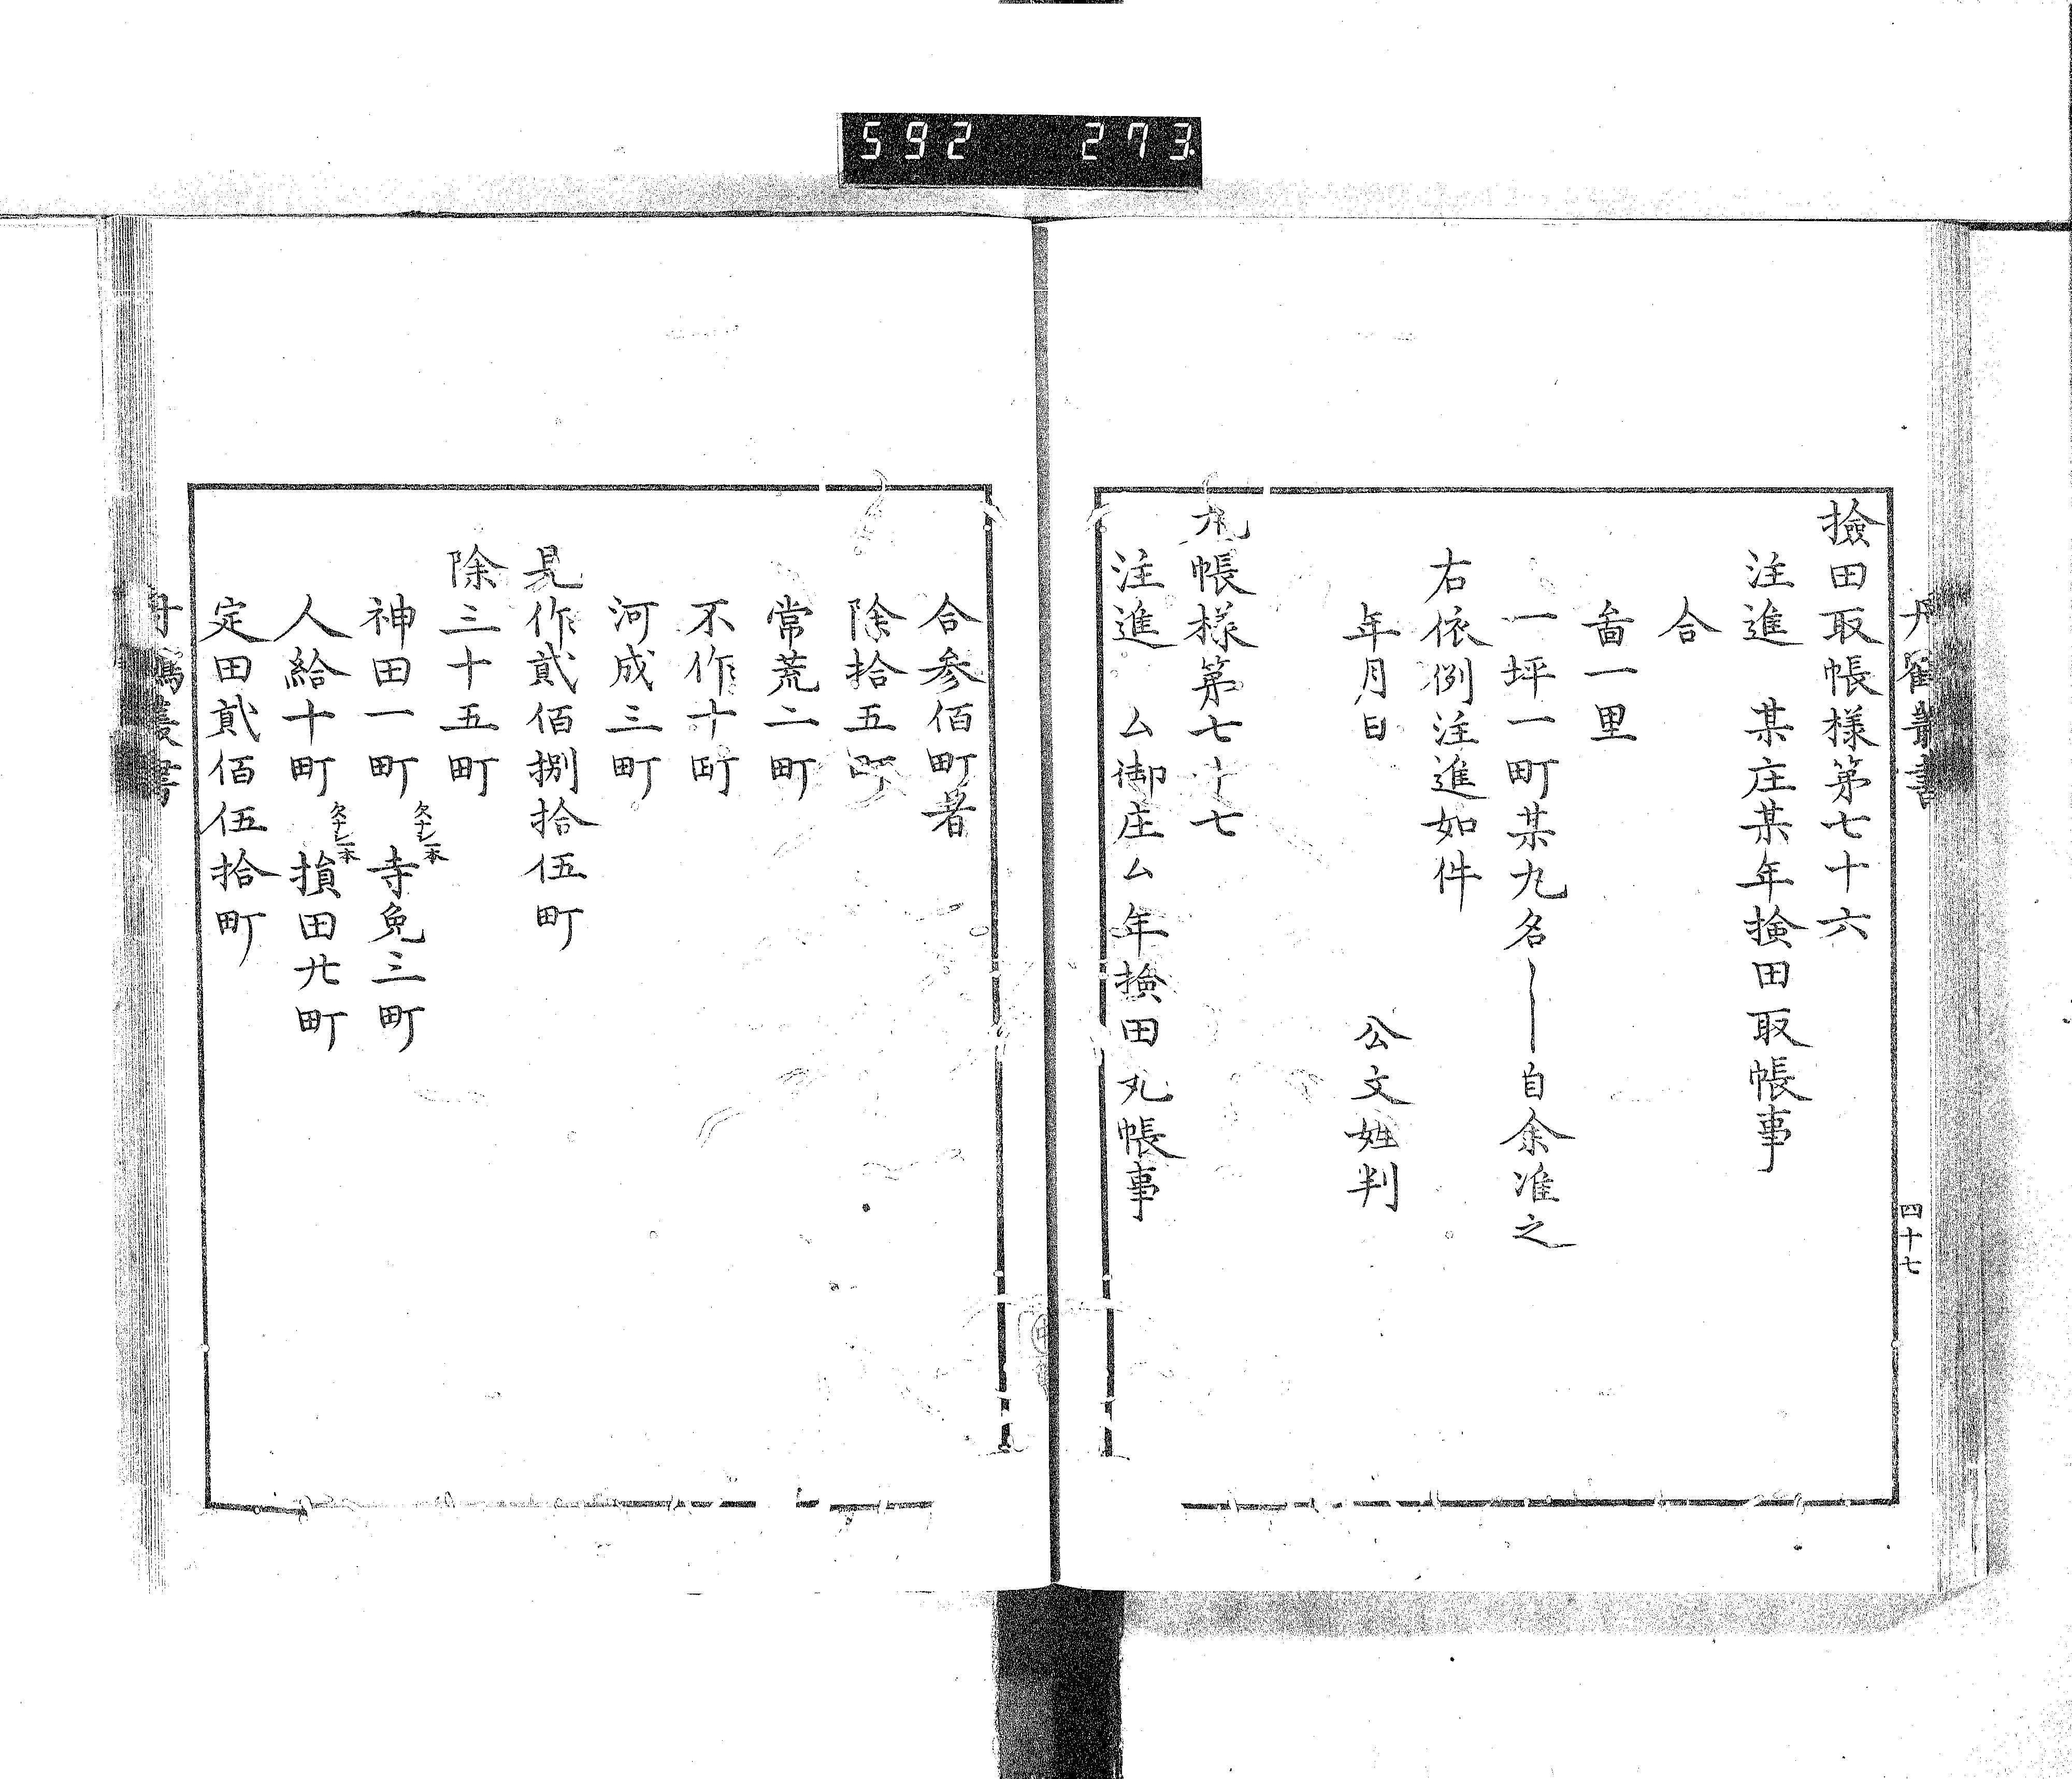 592 273
丹鶴叢書 四十七
撿田取帳様第七十六
注進 某庄某年撿田取帳事
合
啚一里
一坪一町某丸名——自余准之
右依例注進如件
年月日 公文姓判
丸帳様第七十七
注進 ム御庄ム年撿田丸帳事
合参佰町者
除拾五町
常荒二町
不作十町
河成三町
見作貳佰捌拾伍町
除三十五町
神田一町 欠ナシ一本 寺免三町
人給十町 欠ナシ一本 損田廿町
定田貳佰伍拾町
叢書